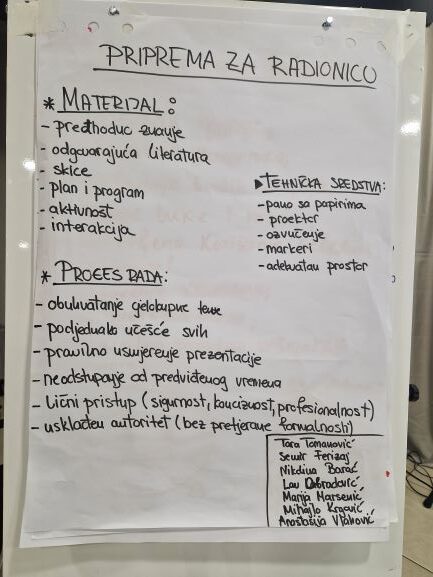 PRIPREMA ZA RADIONICU
* MATERIJAL:
- predhodno znanje
- odgovarajuća literatura
- skice
- plan i program
- aktivnost
- interakcija
▶ TEHNIČKA SREDSTVA:
- pano sa papirima
- proektor
- ozvučenje
- markeri
- adekvatan prostor
* PROCES RADA:
- obuhvatanje cjelokupne teme
- podjednako učešće svih
- pravilno usmjerenje prezentacije
- neodstupanje od predviđenog vremena
- lični pristup (sigurnost, konciznost, profesionalnost)
- usklađen autoritet (bez pretjerane formalnosti)
Tara Tomanović
Semir Ferizaj
Nikolina Barać
Lav Dobradović
Marija Marsenić
Mihajlo
Anastasija Vlahović